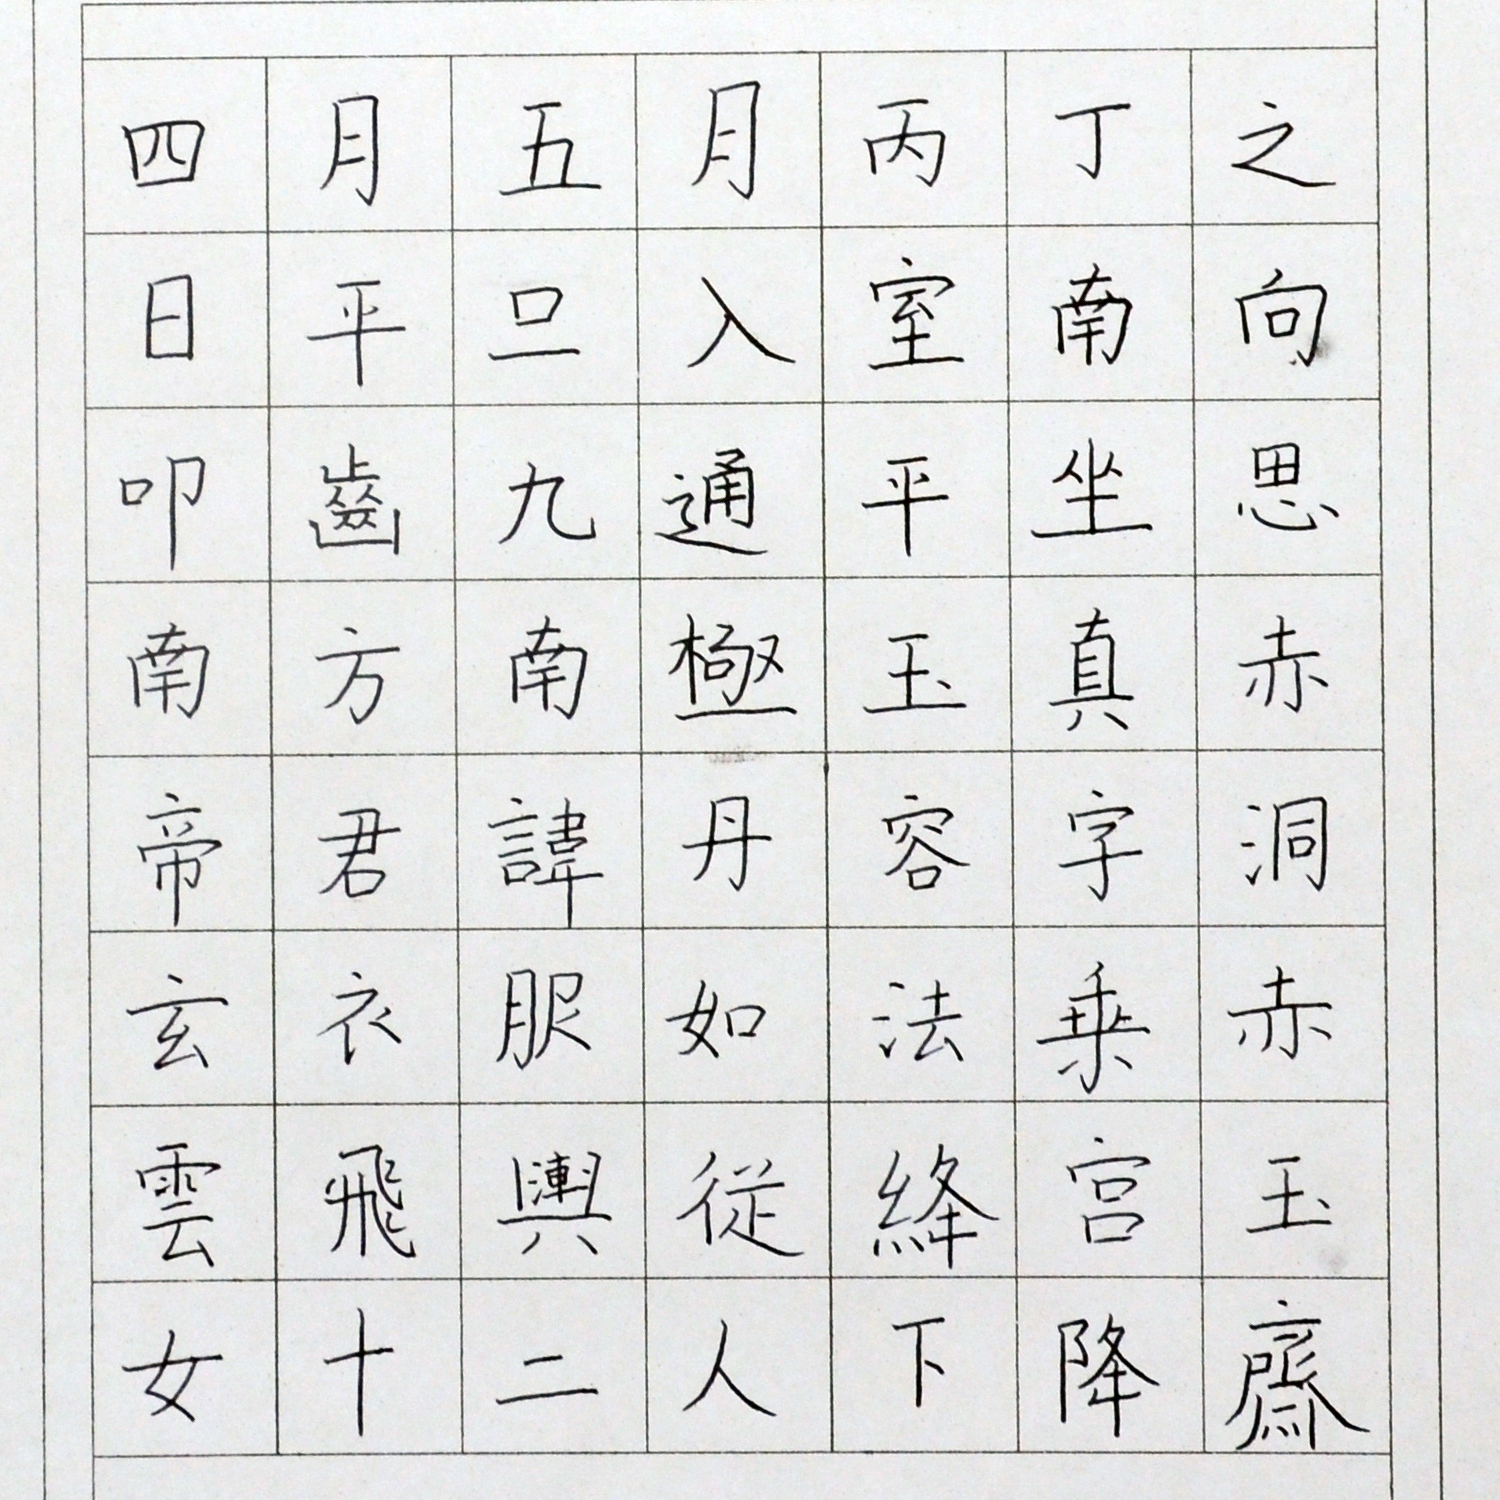 四月五月丙丁之
日平旦入室南向
叩齒九通平坐思
南方南極玉真赤
帝君諱丹容字洞
玄衣服如法乗赤
雲飛輿従絳宮玉
女十二人下降齋